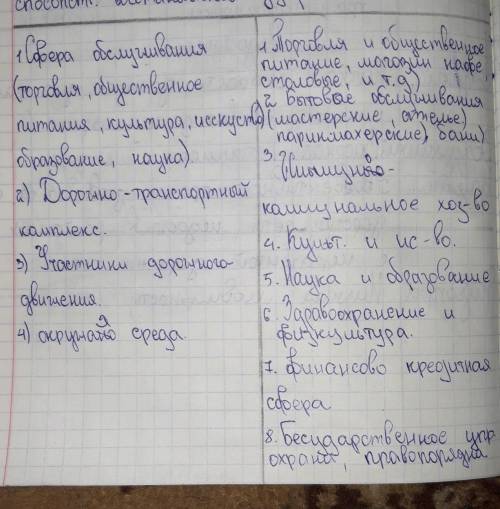 способст.
1 Сфера обслуживания
(торговля, общественное
питания, культура, исскуство
образование, наука).
2) Дорожно-транспортный
комплекс.
3) Участники дорожного-
движения.
4) окружаю среда.
1 Торговля и общественное
питание, магазин кафе,
столовые, и т.д)
2. Бытовое обслуживания
(мастерские, ателье)
парикмахерские, бани)
3.
коммунальное хоз-во
4. Культ. и ис-во.
5. Наука и образование
6. Здравоохранение и
физкультура.
7. Финансово кредитная
сфера
8. Государственное упр
охрана, правопорядка